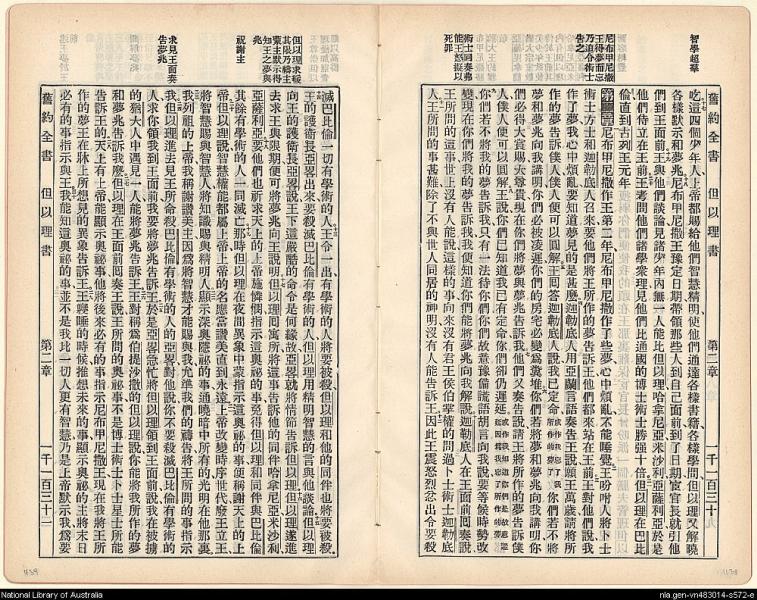 智學超羣
尼布甲尼撒
王得夢而忘
乃迫令術士
告之
術士同奏弗
能王怒擬以
死罪
舊約全書 但以理書 第二章
吃這四個少年人上帝都賜給他們智慧精明使他們通達各樣書籍各樣學問但以理又解曉
各樣默示和夢兆尼布甲尼撒王豫定日期帶領那些人到自己面前到了日期宦官長就引他
們到王面前王與他們談論見諸少年內無一人能比但以理哈拿尼亞米沙利亞薩利亞於是
他們侍立在王前王考問他們諸學衆理見他們比通國的博士術士勝强十倍但以理在巴比
倫直到古列王元年
第二章尼布甲尼撒作王第二年尼布甲尼撒作了些夢心中煩亂不能睡覺王吩咐人將博士
術士方士和迦勒底人召來要他們將王所作的夢告訴王他們都來站在王前王對他們說我
作了夢我心中煩亂要知道夢見的是甚麽迦勒底人用亞蘭言語奏告王說願王萬歲請將所
作的夢告訴僕人僕人便可以圓解王囘答迦勒底人說我已定命
你們若不將
夢和夢兆向我講明你們必被凌遲你們的房宅必變爲糞堆你們若將夢和夢兆向我講明你
們必得大賞賜大尊貴現在你們將夢與夢兆告訴我他們又奏告說請王將所作的夢告訴僕
人僕人便可以圓解王說你們已知道我已有定命你們卻仍遲延
你們若不將我的夢告訴我只有一法待你們你們故意豫備謊語胡言向我說要等候時勢改
變現在你們將我的夢告訴我我便知道你們能將夢兆向我解說迦勒底人在王面前囘奏說
王所問的這事世上沒有人能說這樣的事向來沒有君王侯伯掌權的問過卜士術士迦勒底
人王所問的事甚難除了不與世人同居的神明沒有人能告訴王因此王震怒烈忿出令要殺
但以理求緩
其限乃禱主
蒙主默示得
知王之夢與
兆
祝謝主
求見王面奏
告夢兆
滅巴比倫一切有學術的人王令一出有學術的人將要被殺但以理和他的同伴也將要被殺
王的護衛長亞畧出來要殺滅巴比倫有學術的人但以理用精明智慧的言與他談論但以理
向王的護衛長亞畧說王下這嚴酷的命令是何緣故亞畧就將情節告訴但以理但以理遂進
去求王與限期便可將夢兆向王說明但以理囘寓所將這事告訴他的同伴哈拿尼亞米沙利
亞薩利亞要他們也祈求天上的上帝施憐憫指示這奧祕的事免得但以理和同伴與巴比倫
其餘有學術的人一同滅亡那時但以理在夜間異象中蒙指示這奧祕的事便稱謝天上的上
帝但以理說智慧權能都屬上帝上帝的名應當讚美直到永遠上帝改變時序世代廢王立王
將智慧賜與智慧人將知識賜與精明人顯示深奧隱祕的事通曉暗中所有的光明在他那裏
我列祖的上帝我稱謝讚美主因爲將智慧才能賜與我允準我們的禱告將王所問的事指示
我但以理進去見王所命殺巴比倫有學術的人的亞畧對他說你不要殺滅巴比倫有學術的
人求你領我到王面前我要將夢兆告訴王於是亞畧急忙將但以理領到王面前說我在被擄
的猶大人中遇見一人能將夢兆告訴王王對稱爲伯提沙撒的但以理說你能將我所作的夢
和夢兆告訴我麽但以理在王面前囘奏王說王所問的奧祕事不是博士術士卜士星士所能
告訴王的天上有上帝能顯示奧祕事他將後來必有的事指示尼布甲尼撒王現在我將王所
作的夢王在牀上所想見的異象告訴王王寢睡的時候推想未來的事顯示奧祕的主將末日
必有的事指示與王我能知道奧祕的事並不是我比一切人更有智慧乃是上帝默示我爲要
舊約全書 但以理書 第二章
National Library of Australia
nla.gen-vn483014-s572-e